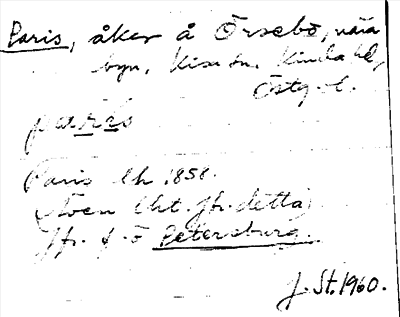 Paris, åker å Örsebo, nära
byn, Kisa sn, Kinda hd,
Östg. l.
paris
Paris lh 1858.
(Även lht. Jfr. detta)
Jfr. f. ö Petersburg.
J. St. 1960.